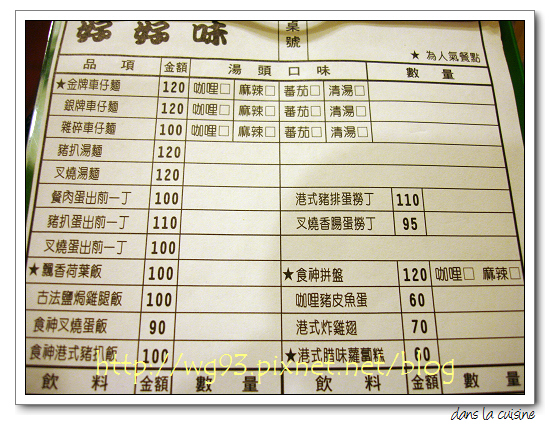 好好味 桌號
★ 為人氣餐點
品項 金額 湯頭口味 數量
★金牌車仔麵 120 咖哩□ 麻辣□ 蕃茄□ 清湯□
銀牌車仔麵 120 咖哩□ 麻辣□ 蕃茄□ 清湯□
雜碎車仔麵 100 咖哩□ 麻辣□ 蕃茄□ 清湯□
豬扒湯麵 120
叉燒湯麵 120
餐肉蛋出前一丁 100 港式豬排蛋撈丁 110
豬扒蛋出前一丁 110 叉燒香腸蛋撈丁 95
叉燒蛋出前一丁 100
★飄香荷葉飯 100 ★食神拼盤 120 咖哩□ 麻辣□
古法鹽焗雞腿飯 100 咖哩豬皮魚蛋 60
食神叉燒蛋飯 90 港式炸雞翅 70
食神港式豬扒飯 100 ★港式腊味蘿蔔糕 60
http://wg93.pixnet.net/blog
飲料 金額 數量 飲料 金額 數量
dans la cuisine